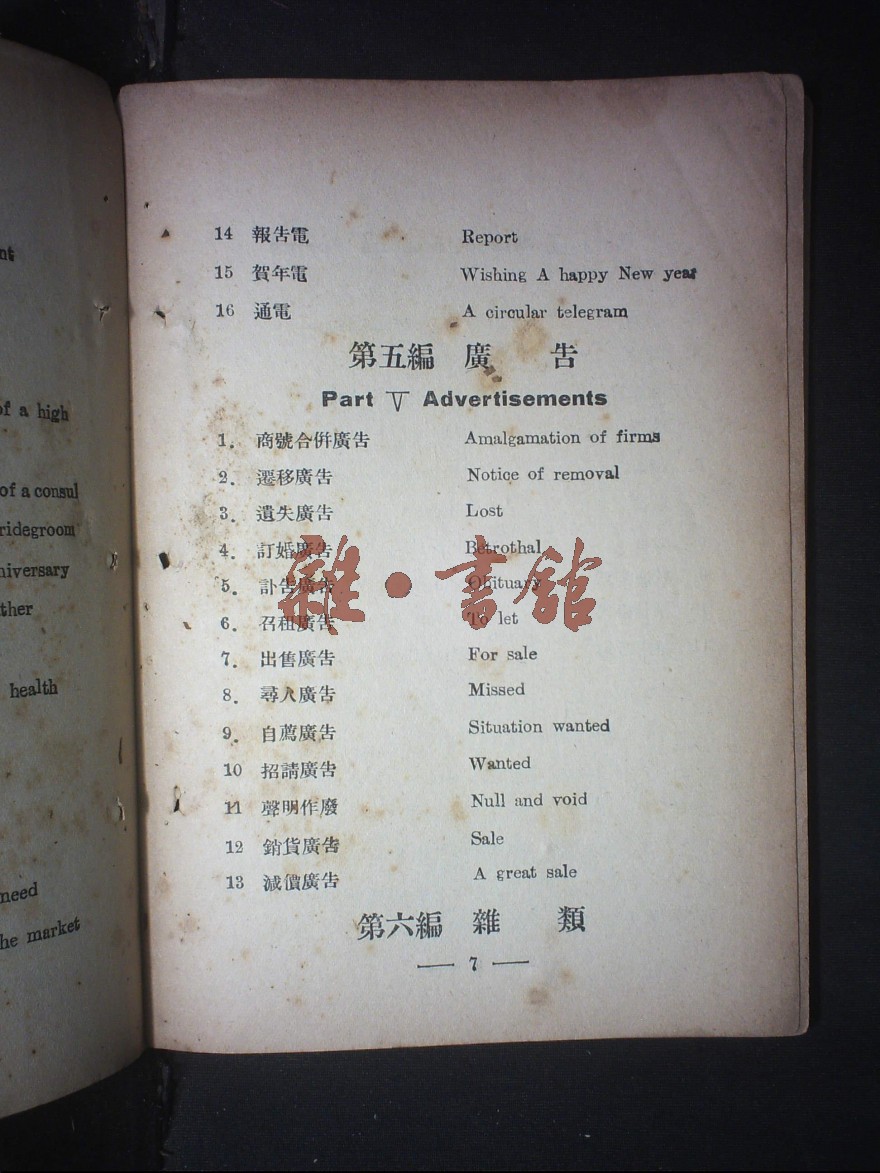 nt
of a high
of a consul
ridegroom
niversary
ther
health
need
he market
14 報告電 Report
15 賀年電 Wishing A happy New year
16 通電 A circular telegram
第五編 廣 告
Part V Advertisements
1. 商號合併廣告 Amalgamation of firms
2. 遷移廣告 Notice of removal
3. 遺失廣告 Lost
4. 訂婚廣告 Betrothal
5. 訃告廣告 Obituary
6. 召租廣告 To let
7. 出售廣告 For sale
8. 尋人廣告 Missed
9. 自薦廣告 Situation wanted
10 招請廣告 Wanted
11 聲明作廢 Null and void
12 銷貨廣告 Sale
13 減價廣告 A great sale
第六編 雜 類
— 7 —
雜·書館